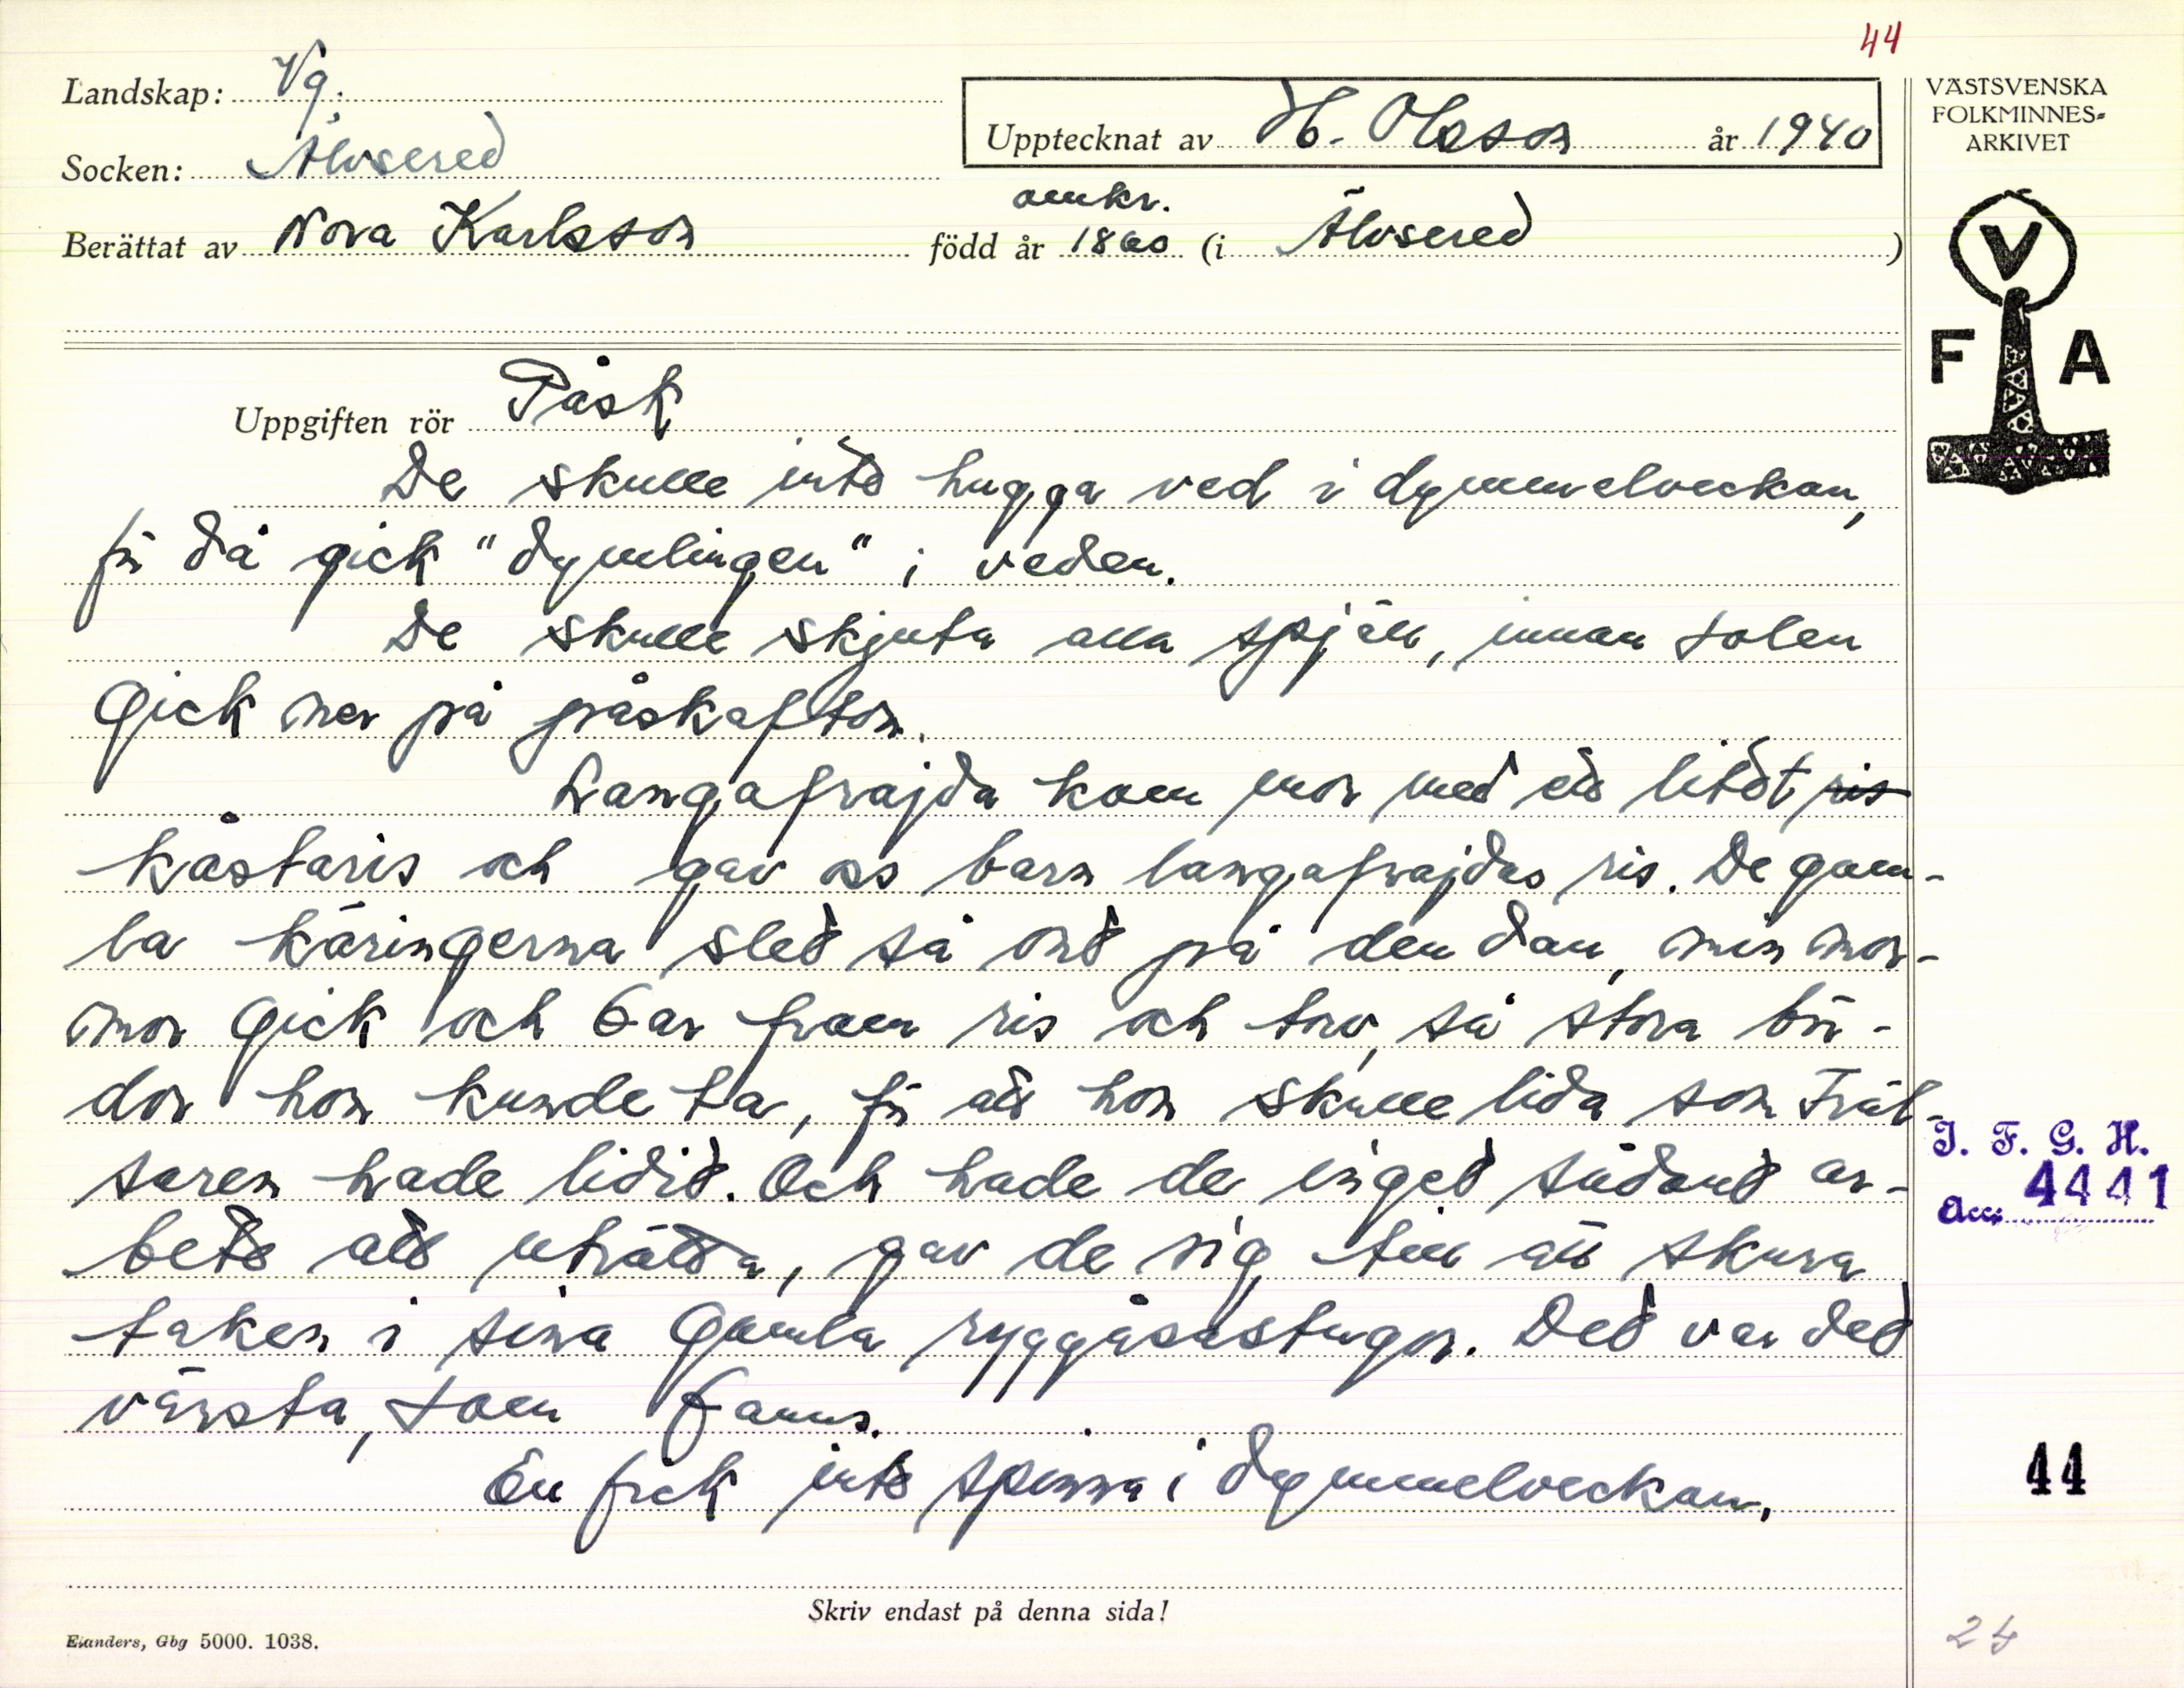 44
Landskap: Vg.
Socken: Älvsered
Upptecknat av H. Olsson år 1940
VÄSTSVENSKA
FOLKMINNES=
ARKIVET
omkr.
Berättat av Nora Karlsson född år 1860 (i Älvsered)
V
F A
Uppgiften rör Påsk
De skulle inte hugga ved i dymmelveckan,
för då gick "dymlingen" i veden.
De skulle skjuta alla spjäll, innan solen
gick ner på påskafton.
Langafrajda kom mor med ett litet ris
kåstaris och gav oss barn langafrajdas ris. De gam-
la käringerna slet så ont på den dan, min mor-
mor gick och bar fram ris och torv, så stora bör-
dor hon kunde ta, för att hon skulle lida som Fräl-
saren hade lidit. Och hade de inget sådant ar-
bete att uträtta, gav de sig till att skura
taken i sina gamla ryggåsastugor. Det var det
värsta, som fanns.
En fick inte spinna i dymmelveckan,
I. F. G. H.
Acc. 4441
44
Skriv endast på denna sida!
Elanders, Gbg 5000. 1038.
24